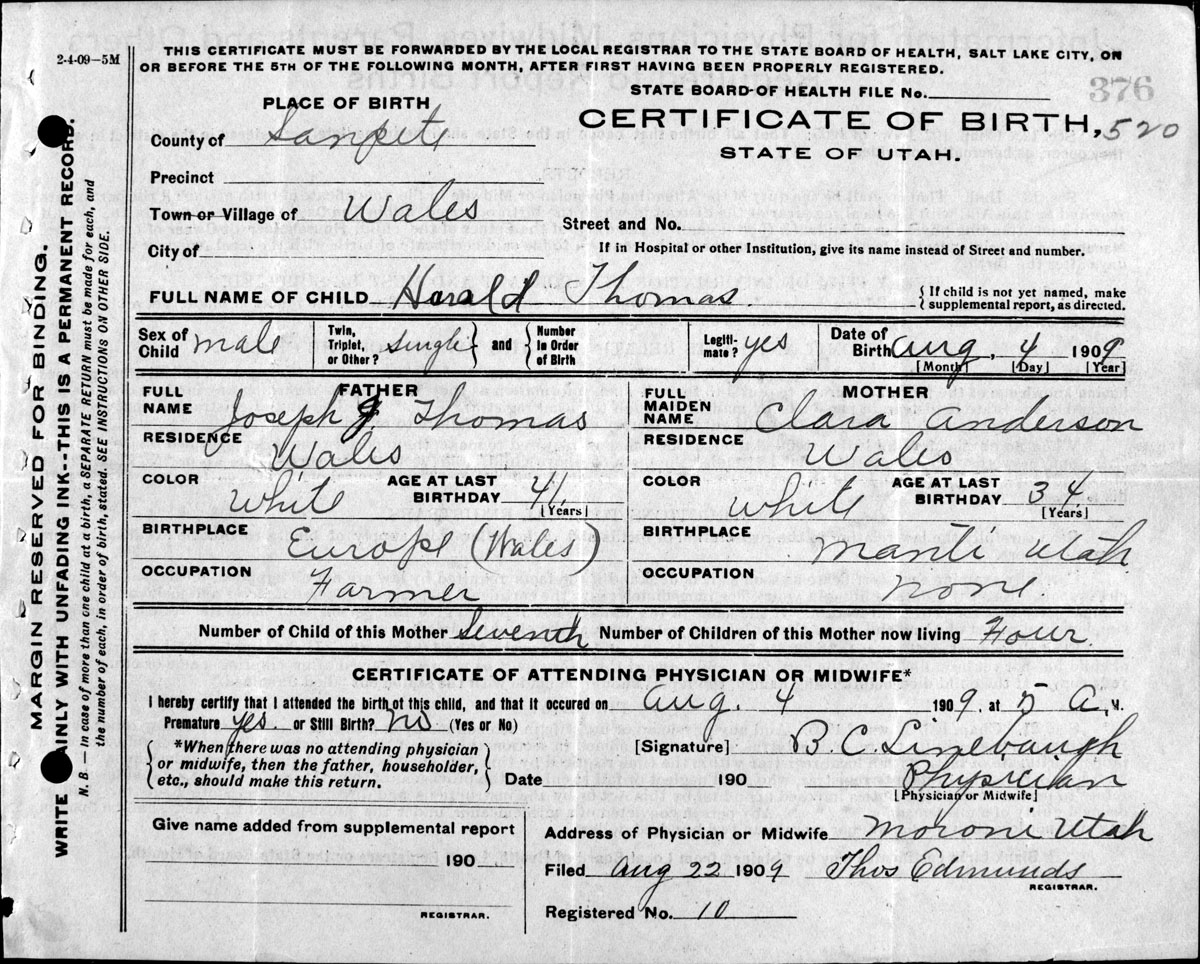 2-4-09-5M
THIS CERTIFICATE MUST BE FORWARDED BY THE LOCAL REGISTRAR TO THE STATE BOARD OF HEALTH, SALT LAKE CITY, ON
OR BEFORE THE 5TH OF THE FOLLOWING MONTH, AFTER FIRST HAVING BEEN PROPERLY REGISTERED.
STATE BOARD OF HEALTH FILE No. 376
PLACE OF BIRTH
CERTIFICATE OF BIRTH, 520
County of Sanpete
STATE OF UTAH.
Precinct
Town or Village of Wales
Street and No.
City of
If in Hospital or other Institution, give its name instead of Street and number.
FULL NAME OF CHILD Harald Thomas. { If child is not yet named, make
supplemental report, as directed.
Sex of Child male Twin, Triplet, or Other? Single } and { Number in Order of Birth Legiti- mate? yes Date of Birth Aug. 4 1909
[Month] [Day] [Year]
FATHER MOTHER
FULL NAME Joseph J. Thomas FULL MAIDEN NAME Clara Anderson
RESIDENCE Wales RESIDENCE Wales
COLOR White AGE AT LAST BIRTHDAY 41 [Years] COLOR White AGE AT LAST BIRTHDAY 34 [Years]
BIRTHPLACE Europe (Wales) BIRTHPLACE Manti Utah
OCCUPATION Farmer OCCUPATION none.
Number of Child of this Mother Seventh Number of Children of this Mother now living Four.
CERTIFICATE OF ATTENDING PHYSICIAN OR MIDWIFE*
I hereby certify that I attended the birth of this child, and that it occured on Aug. 4 1909, at 5 A. M.
Premature yes. or Still Birth? no (Yes or No)
{ *When there was no attending physician
or midwife, then the father, householder,
etc., should make this return. }
[Signature] B. C. Linebaugh
Date 190 Physician
[Physician or Midwife]
Give name added from supplemental report
190
REGISTRAR.
Address of Physician or Midwife Moroni Utah
Filed Aug 22 1909 Thos Edmunds
REGISTRAR.
Registered No. 10
MARGIN RESERVED FOR BINDING.
WRITE AINLY WITH UNFADING INK--THIS IS A PERMANENT RECORD.
N. B. — In case of more than one child at a birth, a SEPARATE RETURN must be made for each, and
the number of each, in order of birth, stated. SEE INSTRUCTIONS ON OTHER SIDE.